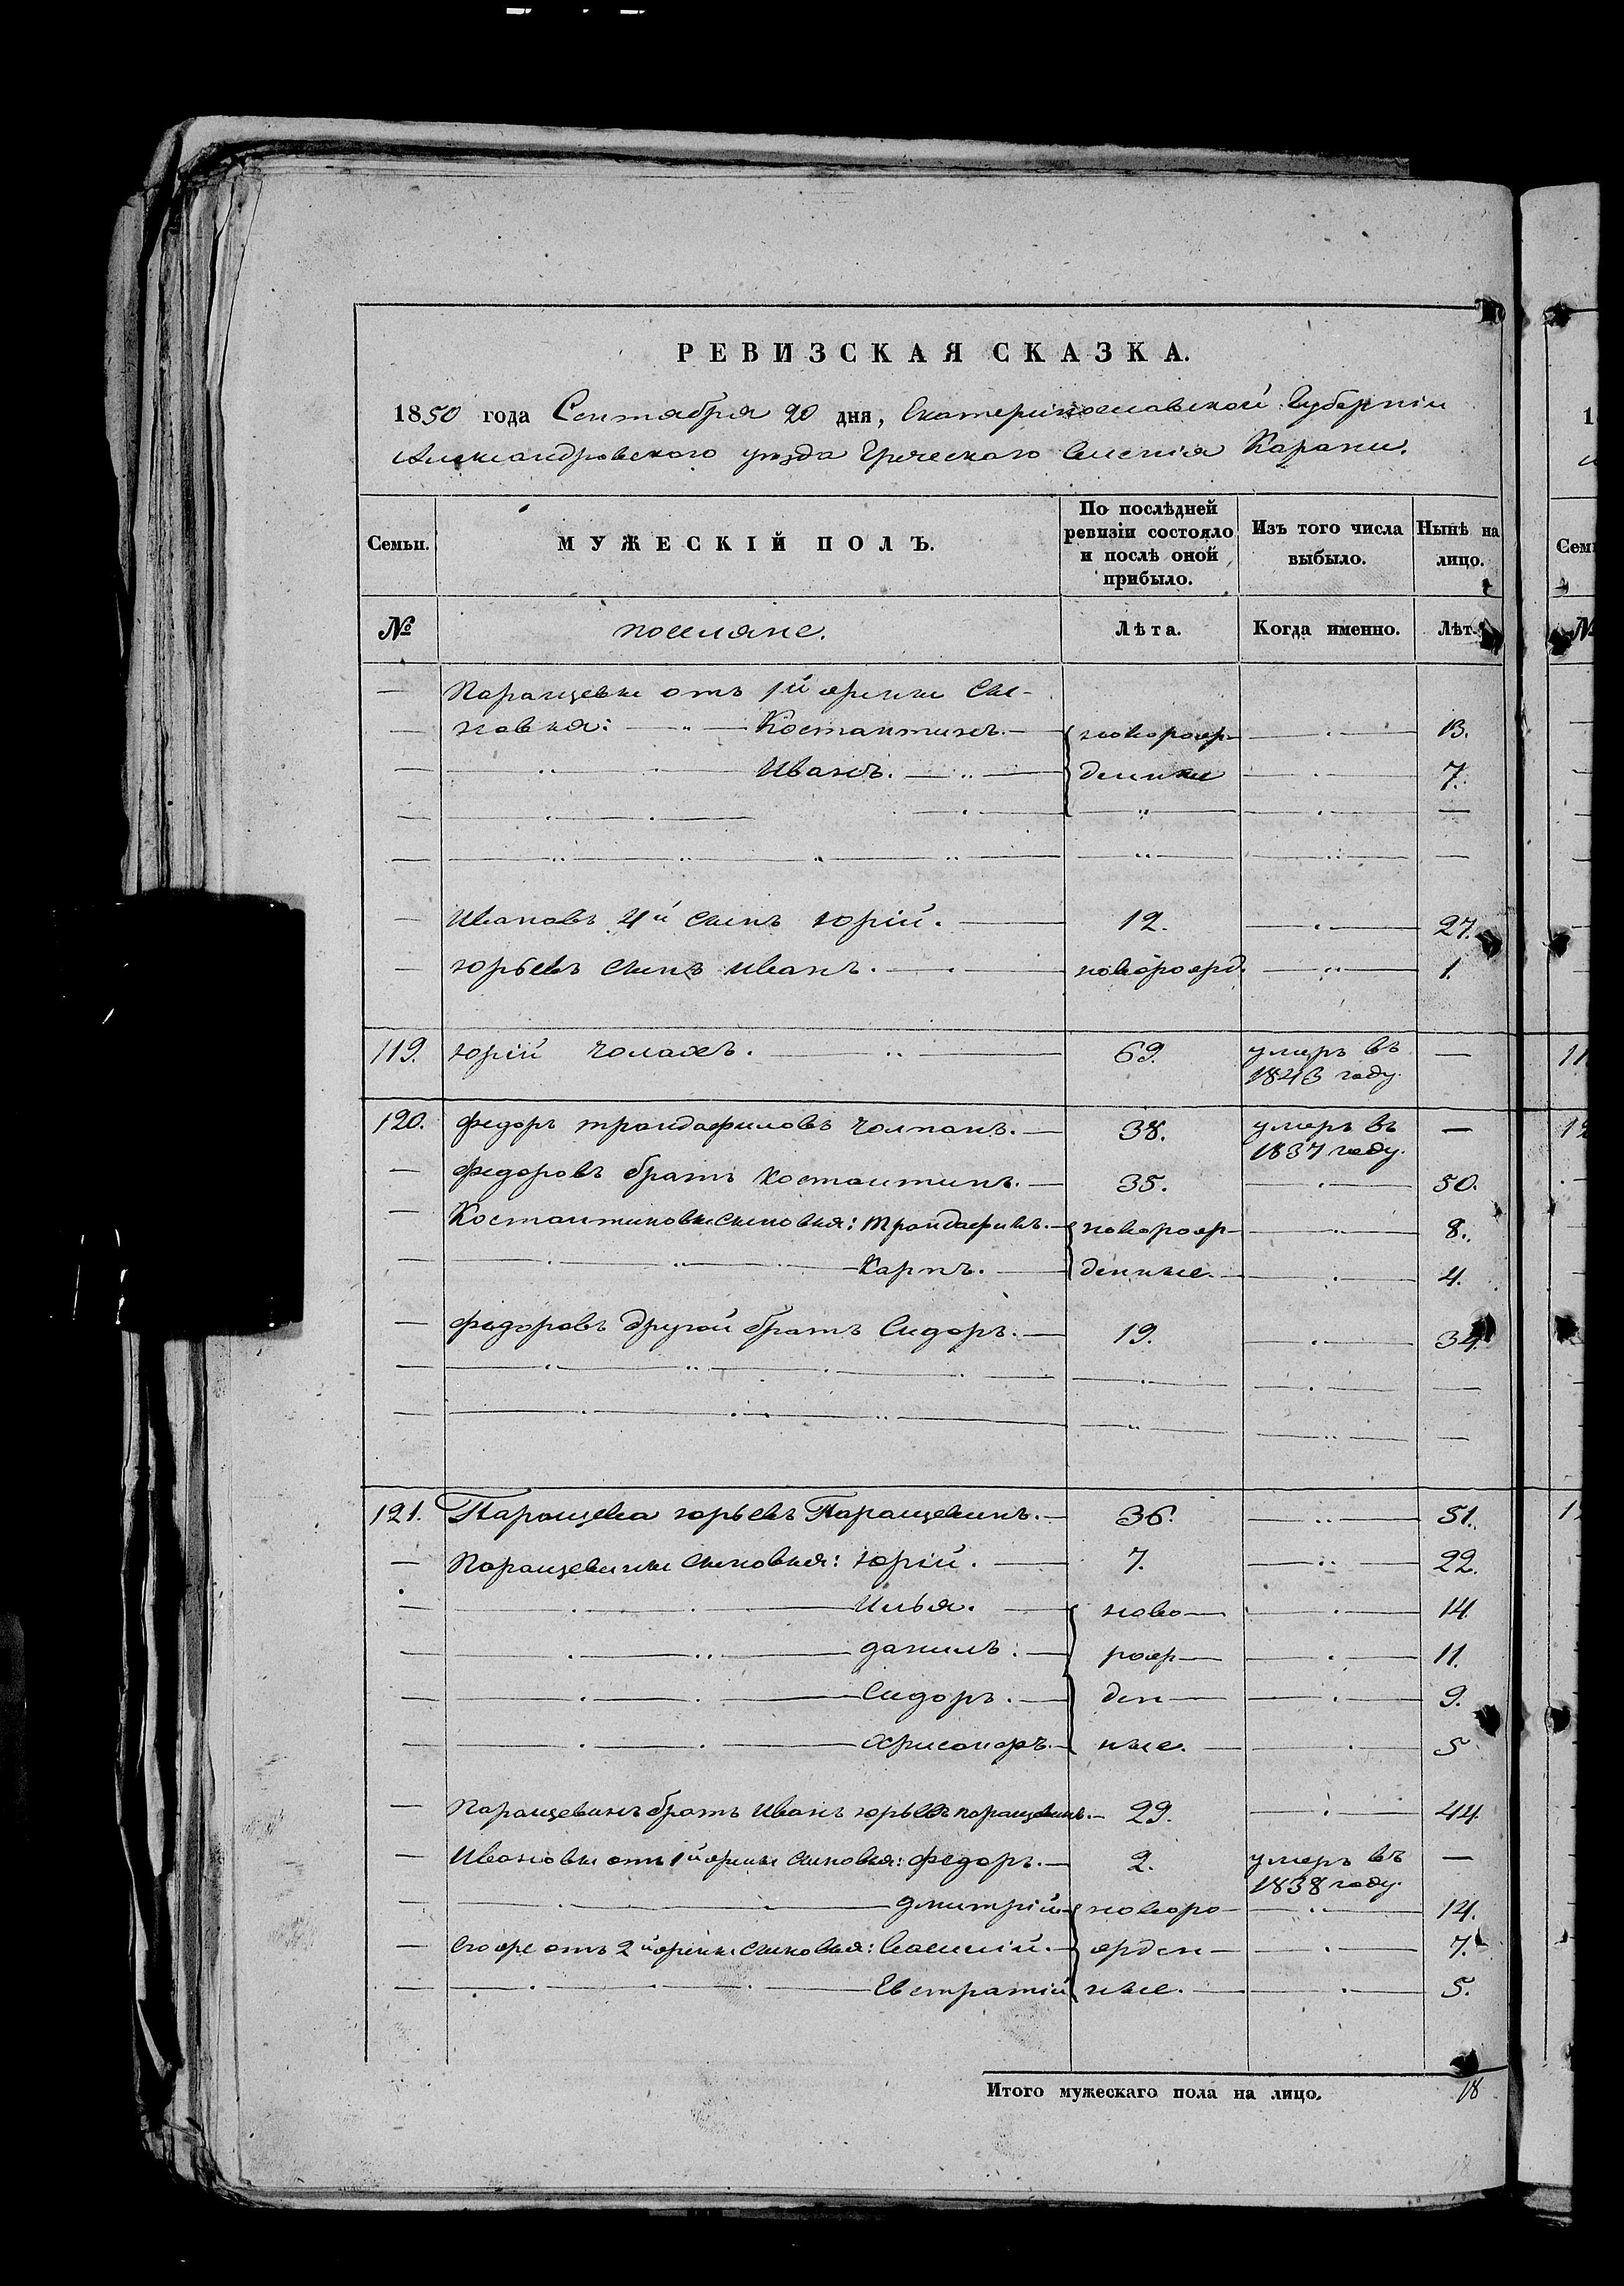 РЕВИЗСКАЯ СКАЗКА.
1850 года Сентября 20 дня, Екатеринославской Губерніи
Александровского уезда Греческого Селенія Карани.
Семьи. МУЖЕСКІЙ ПОЛЪ. По послѣдней ревизіи состояло и послѣ оной прибыло. Изъ того числа выбыло. Нынѣ на лицо.
№ поселяне. Лѣта. Когда именно. Лѣт.
— Паращевы отъ 1й жены сы-
— новья: Костантинъ. новорож- — 13.
— Иванъ. денные — 7.
— Ивановъ 4й сынъ Юрій. 12. — 27.
— Юрьевъ сынъ Иванъ. новорожд. — 1.
119. Юрій Чолахъ. 69. умеръ въ —
1843 году.
120. Федоръ Трандафиловъ Чолпанъ. 38. умеръ въ —
1837 году.
— Федоровъ братъ Костантинъ. 35. — 50.
— Костантиновы сыновья: Трандафилъ. новорож- — 8.
— Карпъ. денные. — 4.
— Федоровъ другой братъ Сидоръ. 19. — 34.
121. Паращева Юрьевъ Паращевинъ. 36. — 51.
— Паращевины сыновья: Юрій. 7. — 22.
— Илья. ново — 14.
— Данилъ. рож — 11.
— Сидоръ. ден — 9.
— ные. — 5
— Паращевинъ братъ Иванъ Юрьевъ Паращевинъ. 29. — 44.
— Ивановы отъ 1й жены сыновья: Федоръ. 2. умеръ въ —
1838 году.
— Дмитрій новоро — 14.
— Его же отъ 2й жены сыновья: Василій. жден — 7.
— Евстратій ные. — 5.
Итого мужескаго пола на лицо. 18